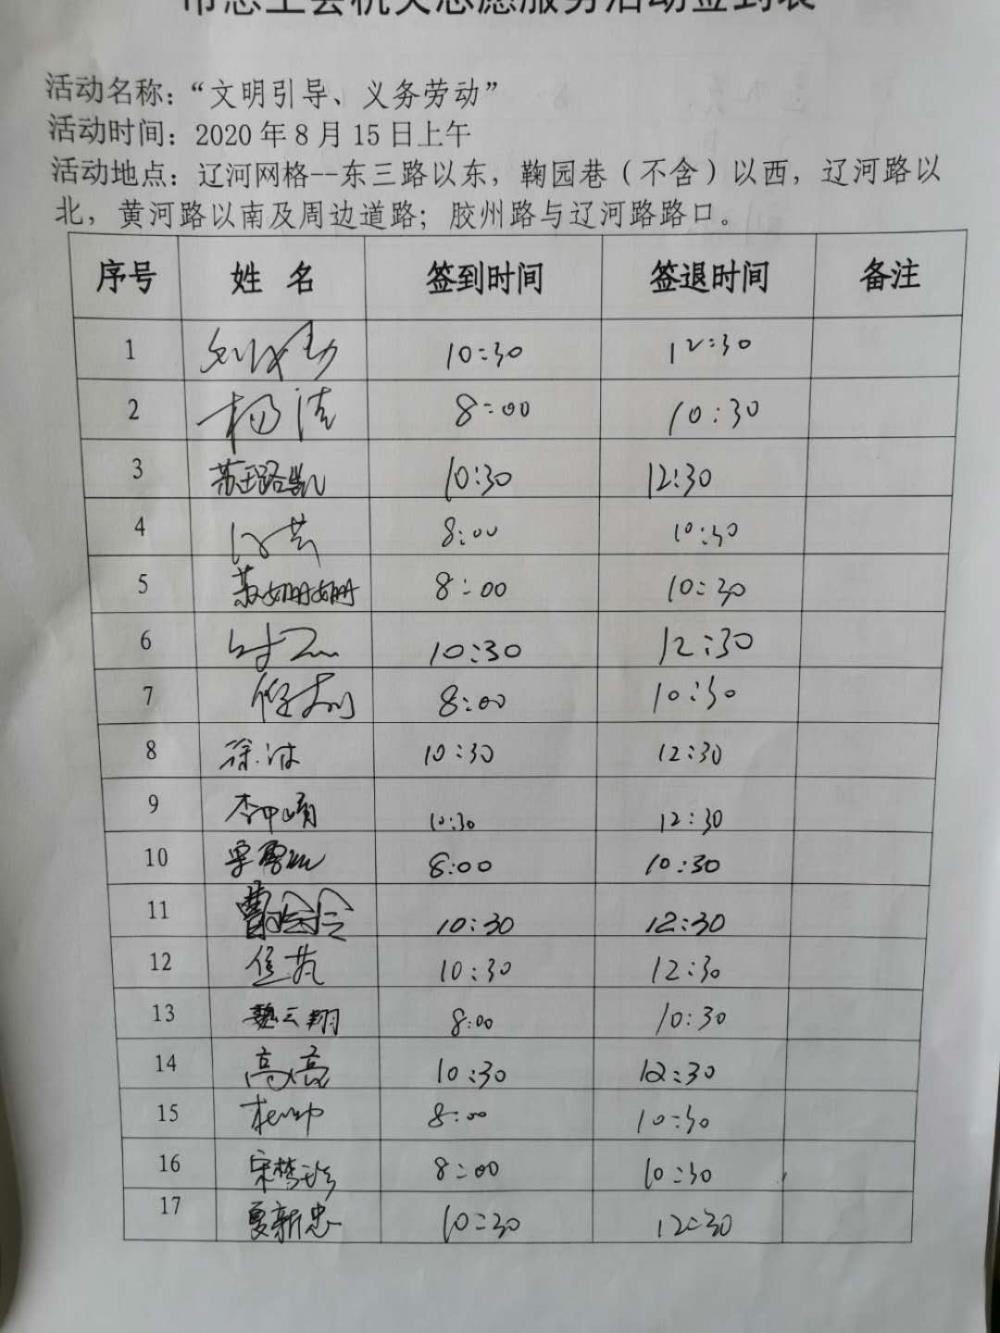 市总工会机关志愿服务活动签到表
活动名称：“文明引导、义务劳动”
活动时间：2020年8月15日上午
活动地点：辽河网格--东三路以东，鞠园巷（不含）以西，辽河路以
北，黄河路以南及周边道路；胶州路与辽河路路口。
序号 姓名 签到时间 签退时间 备注
1 10:30 12:30
2 杨洁 8:00 10:30
3 苏珏路凯 10:30 12:30
4 8:00 10:30
5 苏姗姗 8:00 10:30
6 10:30 12:30
7 8:00 10:30
8 徐 10:30 12:30
9 李甲 10:30 12:30
10 8:00 10:30
11 曹 10:30 12:30
12 10:30 12:30
13 魏云翔 8:00 10:30
14 高亮 10:30 12:30
15 8:00 10:30
16 宋梦 8:00 10:30
17 夏新忠 10:30 12:30